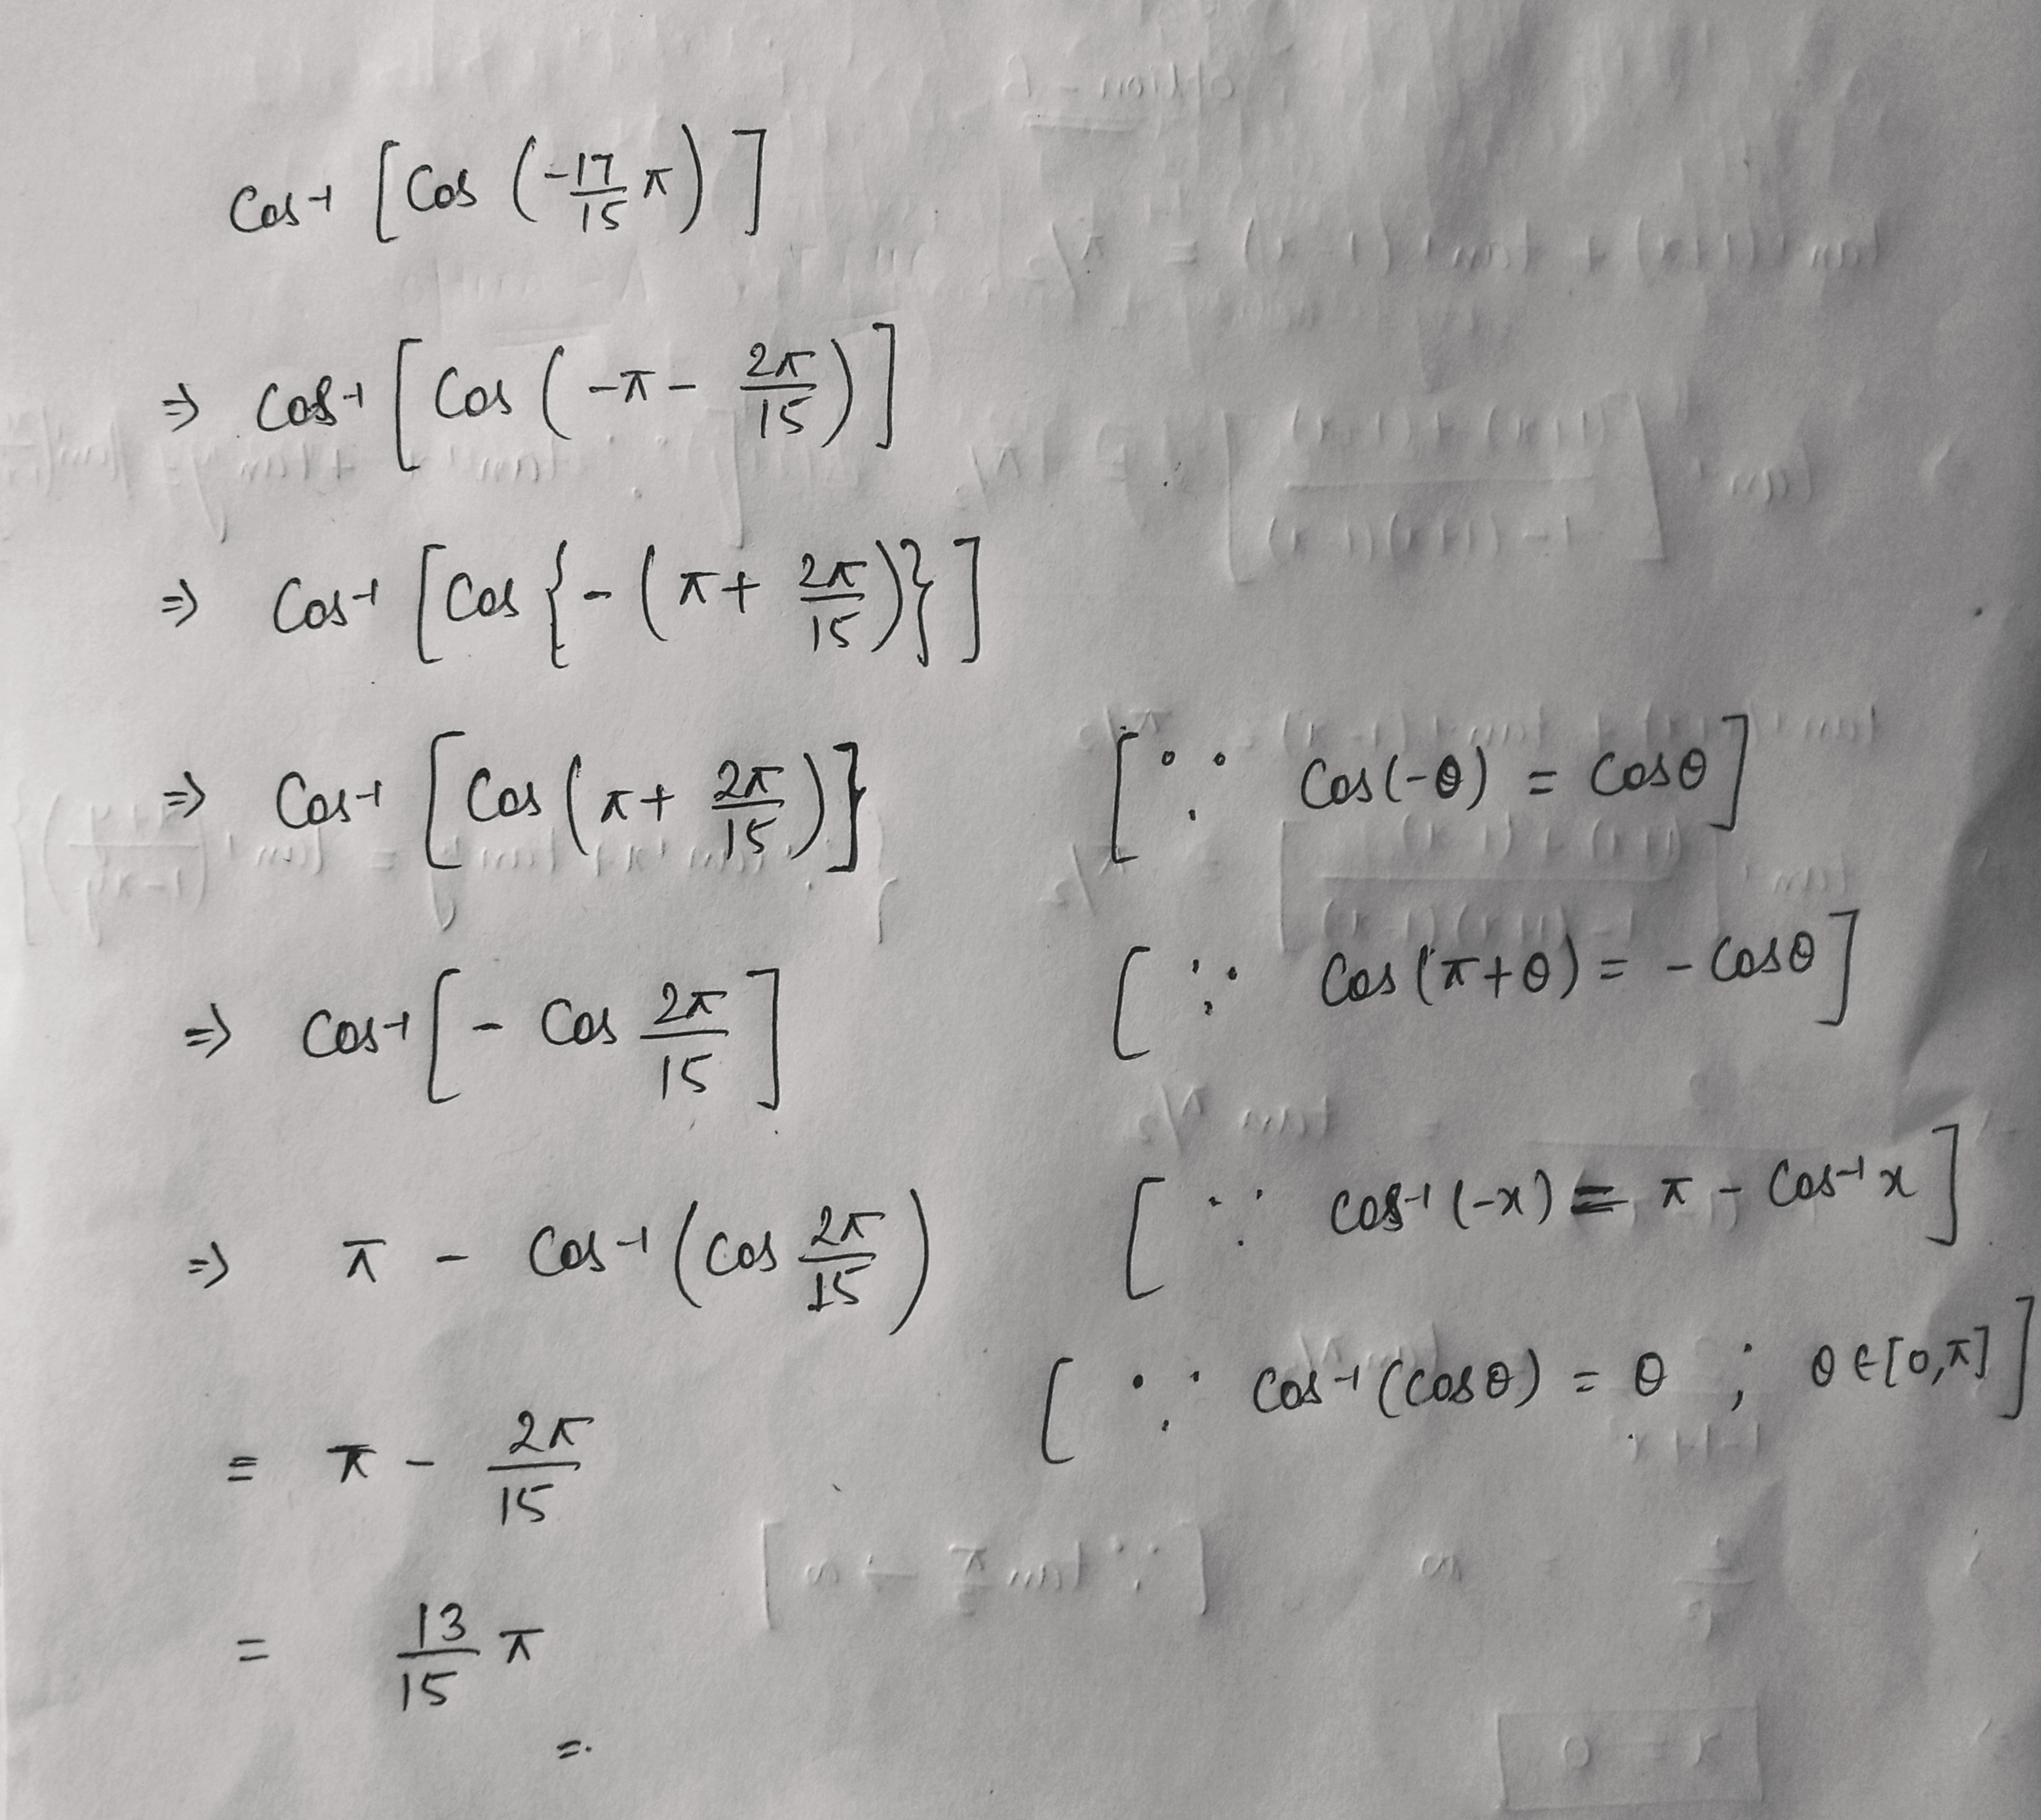 Cos⁻¹ [Cos (-17/15 π)]
⇒ Cos⁻¹ [Cos (-π - 2π/15)]
⇒ Cos⁻¹ [Cos {-(π + 2π/15)}]
⇒ Cos⁻¹ [Cos (π + 2π/15)} [∵ Cos(-θ) = Cosθ]
⇒ Cos⁻¹ [- Cos 2π/15] [∵ Cos(π+θ) = - Cosθ]
⇒ π - Cos⁻¹ (Cos 2π/15) [∵ Cos⁻¹(-x) = π - Cos⁻¹x]
[∵ Cos⁻¹(Cosθ) = θ ; θ ∈ [0,π]]
= π - 2π/15
= 13/15 π